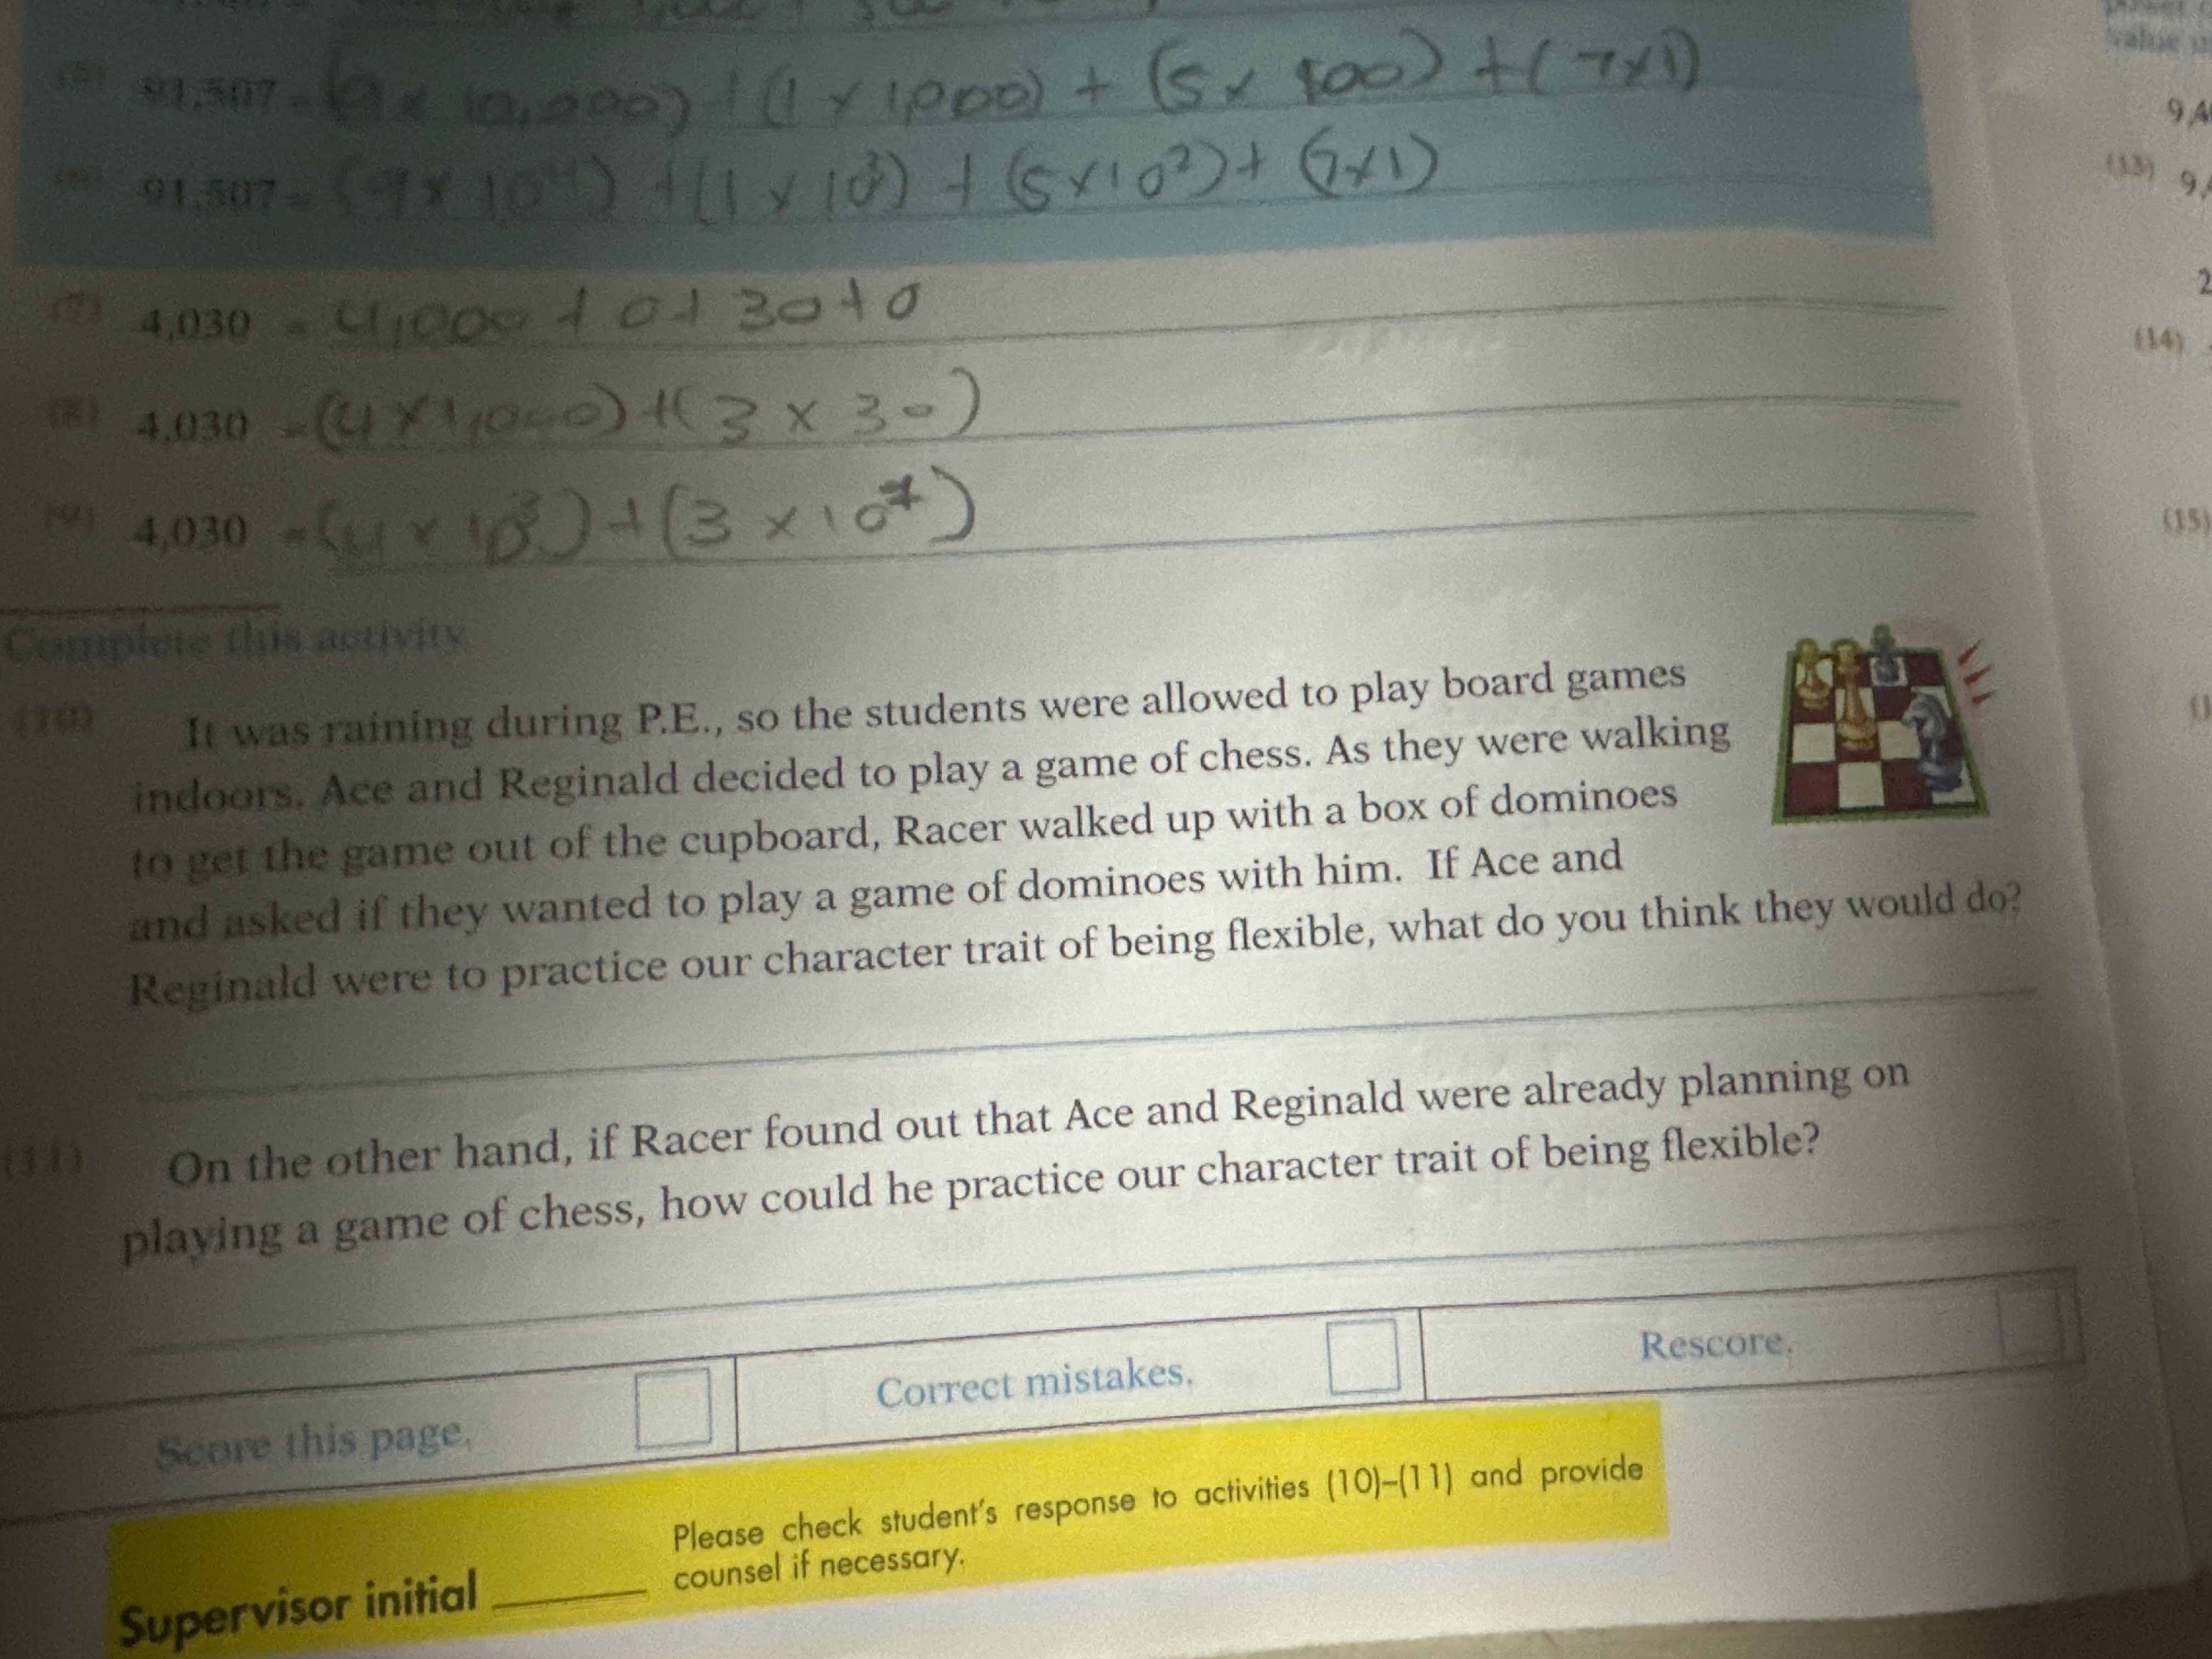 (5) 91,507 = (9 x 10,000) + (1 x 1,000) + (5 x 100) + (7x1)
(6) 91,507 = (9 x 10⁴) + (1 x 10³) + (5 x 10²) + (7x1)
(7) 4,030 = 4,000 + 0 + 30 + 0
(8) 4,030 = (4 x 1,000) + (3 x 30)
(9) 4,030 = (4 x 10³) + (3 x 10⁷)
Complete this activity.
(10) It was raining during P.E., so the students were allowed to play board games
indoors. Ace and Reginald decided to play a game of chess. As they were walking
to get the game out of the cupboard, Racer walked up with a box of dominoes
and asked if they wanted to play a game of dominoes with him. If Ace and
Reginald were to practice our character trait of being flexible, what do you think they would do?
(11) On the other hand, if Racer found out that Ace and Reginald were already planning on
playing a game of chess, how could he practice our character trait of being flexible?
Score this page.
Correct mistakes.
Rescore.
Supervisor initial
Please check student's response to activities (10)–(11) and provide
counsel if necessary.
value
(13) 9,
(14)
(15)